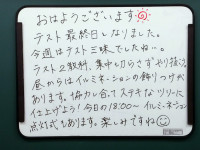 おはようございます
テスト最終日となりました。
今週はテスト三昧でしたね…。
テスト2教科、集中力切らさずやり抜こう
昼からはイルミネーションの飾りつけが
あります。協力し合ってステキなツリーに
仕上げよう!今日の18:00〜イルミネーション
点灯式もあります。楽しみですね